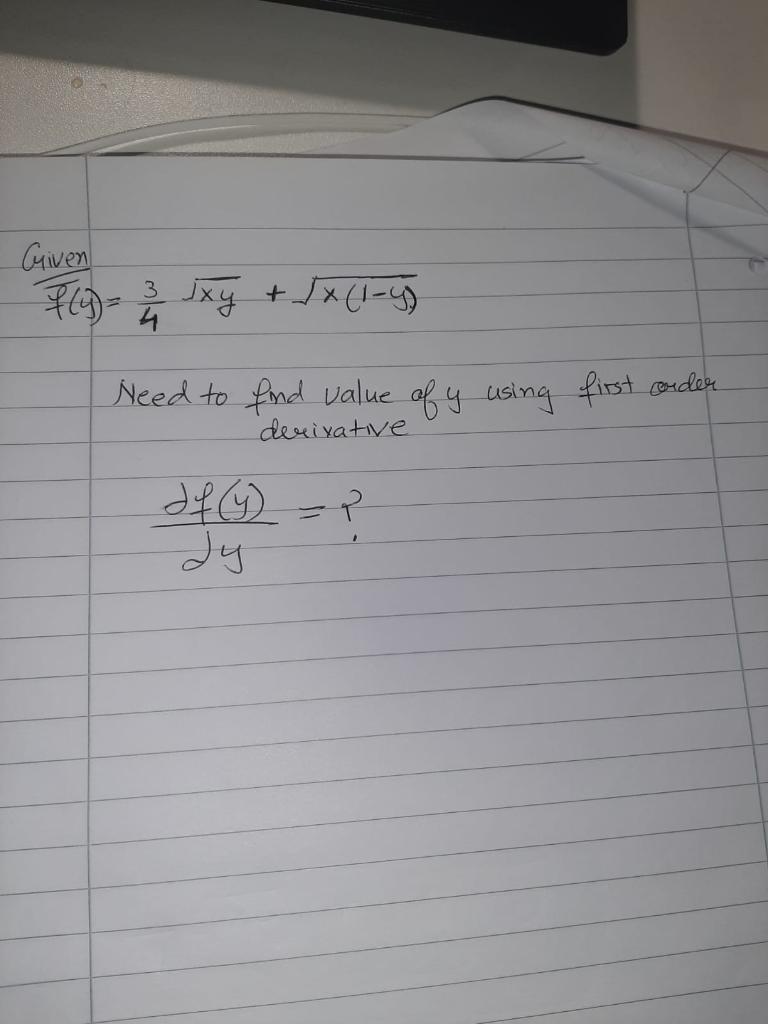 Given
f(y) = 3/4 √xy + √x(1-y)
Need to find value of y using first order
derivative
df(y)/dy = ?